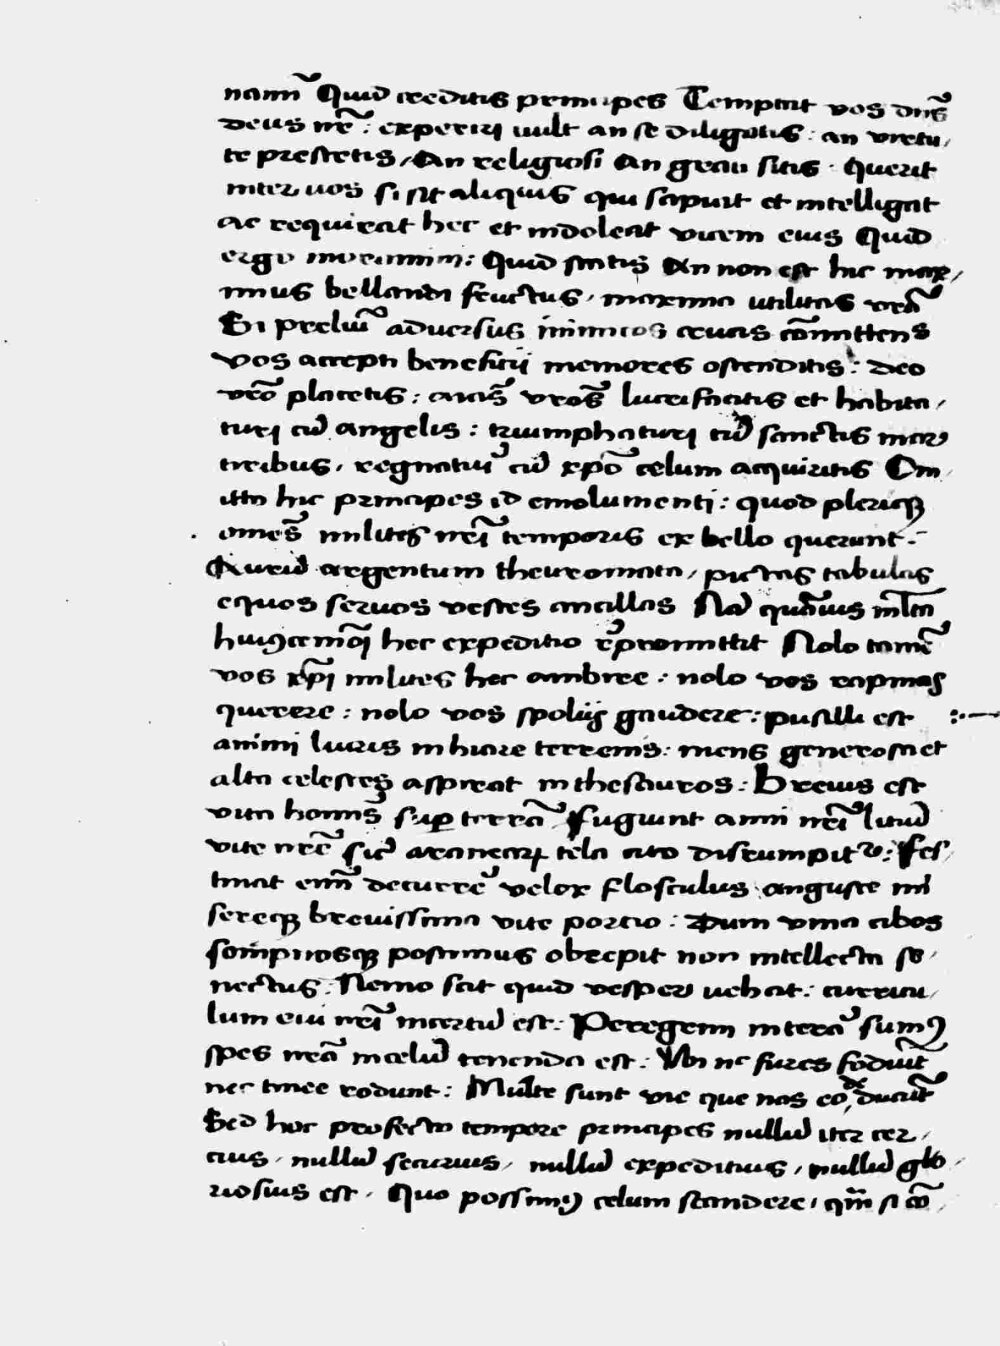 nam̃ Quid creditis principes Temptat vos dñs
deus nr̃ : experiri uult an se diligatis : an virtu,
te prestetis, An religiosi An graui sitis · Querit
inter uos si sit aliquis qui sapiat et intelligat
ac requirat hec et indoleat vicem eius Quid
ergo Quid statis An non est hic maxi,
mus bellandi fructus, maxima utilitas vrã
Si preliũ aduersus inimicos crucis cõmittens
vos accepti beneficii memores ostenditis : deo
vero placetis : aĩas vrãs lucrifacitis et habita,
turi cũ angelis : triumphaturi cũ sanctis mar
tiribus, regnaturi cũ xpõ celum acquiritis Om,
itto hic principes id emolumenti : quod pleriqꝫ
omẽs milites nrĩ temporis ex bello querunt :
Aurũ argentum theuromata, pictas tabulas
equos seruos vestes ancillas Nã quãuis mlta
huiꝰcemõi hec expeditio repromittit Nolo tamẽ
vos xpĩ milites hec ambire : nolo vos rapinas
querere : nolo vos spoliis gaudere : pusilli est
animi lucris inhiare terrenis : mens generosa et
alta celestes aspirat in thesauros : Breuis est
vita homĩs sup terrã fugiunt anni nrĩ liciũ
vite nrẽ sic̃ aranearꝝ tela cito disrumpitᷣ : Fes,
tinat enĩ decurrẽ velox flosculus anguste mi
sereqꝫ breuissima vite portio : Dum vina cibos
sompnosqꝫ poscimus obrepit non intellecta se,
nectus : Nemo scit quid vesper uehat : curricu,
lum eui nrĩ incertũ est : Peregrini in terã sumꝰ
spes nrã in celũ tenenda est : Vbi nc fures fodiũt
nec tinee rodunt : Multe sunt vie que nos eo deducũt
Sed hoc profecto tempore principes nullũ iter cer,
cius, nullũ securius, nullũ expeditius, nullũ glo,
riosius est, Quo possimꝰ celum scandere, qm̃ si cõ,